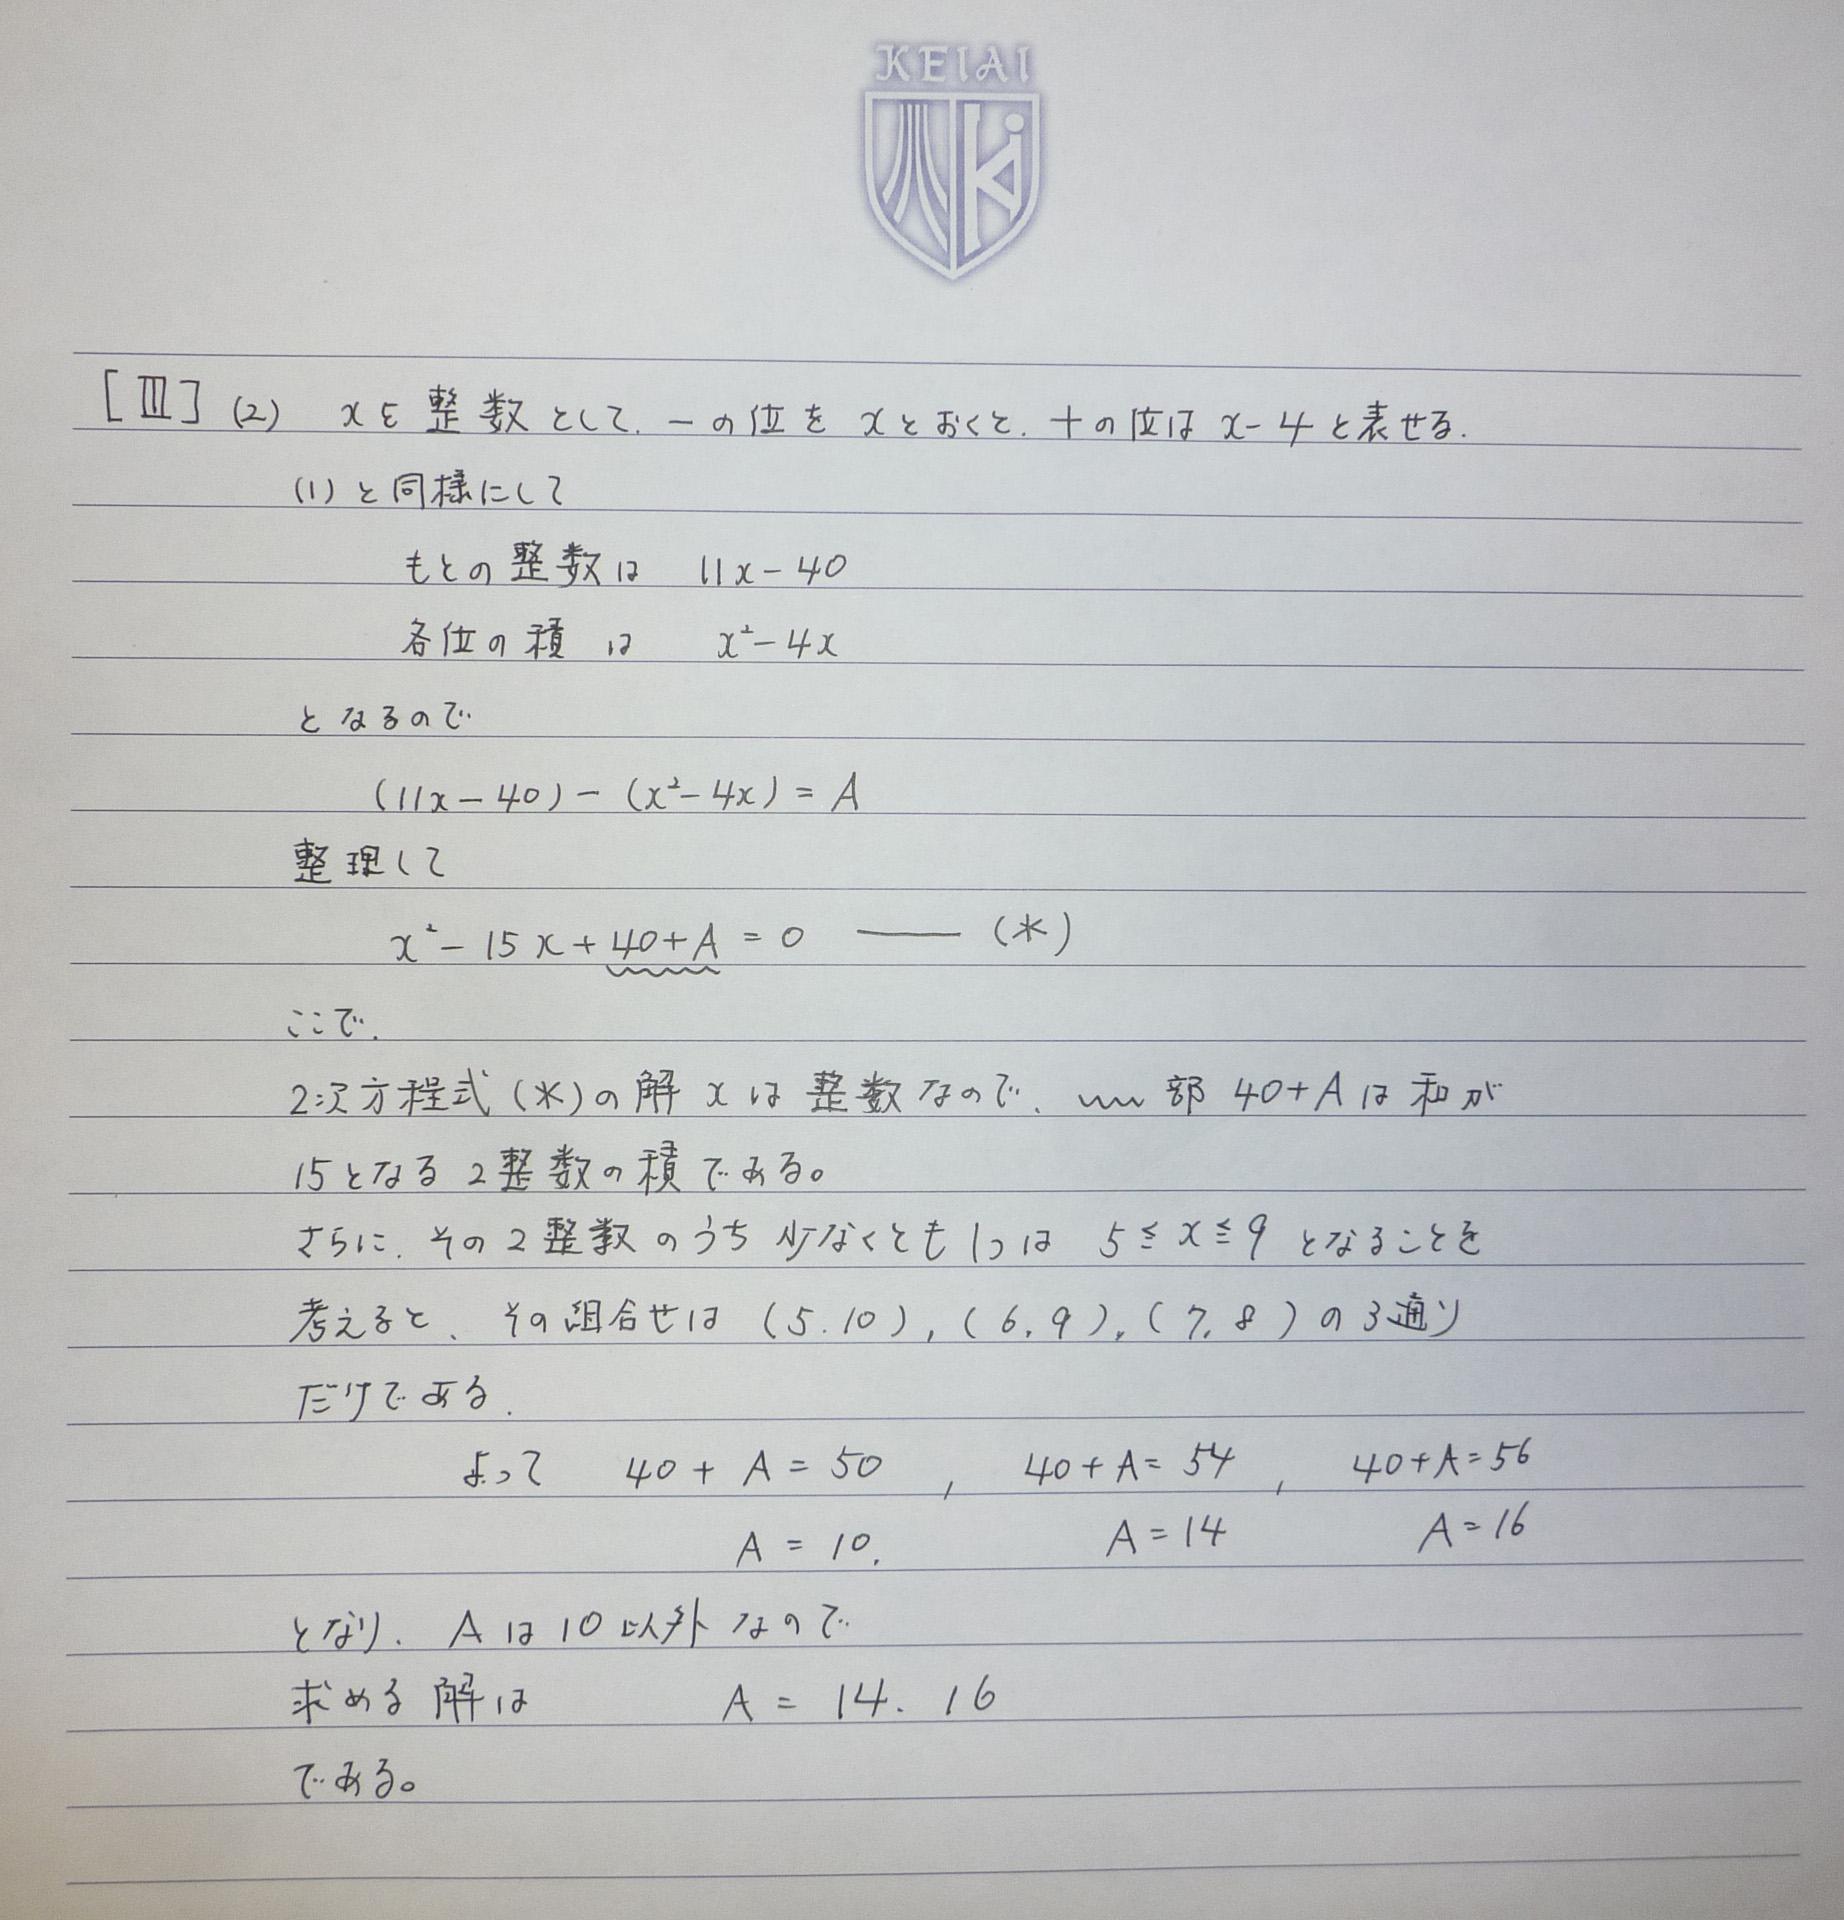 KEIAI
[Ⅲ] (2) xを整数として、一の位をxとおくと、十の位はx-4と表せる.
(1)と同様にして
もとの整数は 11x-40
各位の積は x²-4x
となるので
(11x-40)-(x²-4x)=A
整理して
x²-15x+40+A=0 ――― (*)
ここで、
2次方程式(*)の解xは整数なので、〰部 40+Aは和が
15となる2整数の積である。
さらに、その2整数のうち少なくとも1つは 5≦x≦9 となることを
考えると、その組合せは (5.10), (6,9), (7,8) の3通り
だけである.
よって 40+A=50 , 40+A=54 , 40+A=56
A=10, A=14 A=16
となり、Aは10以外なので
求める解は A=14.16
である。